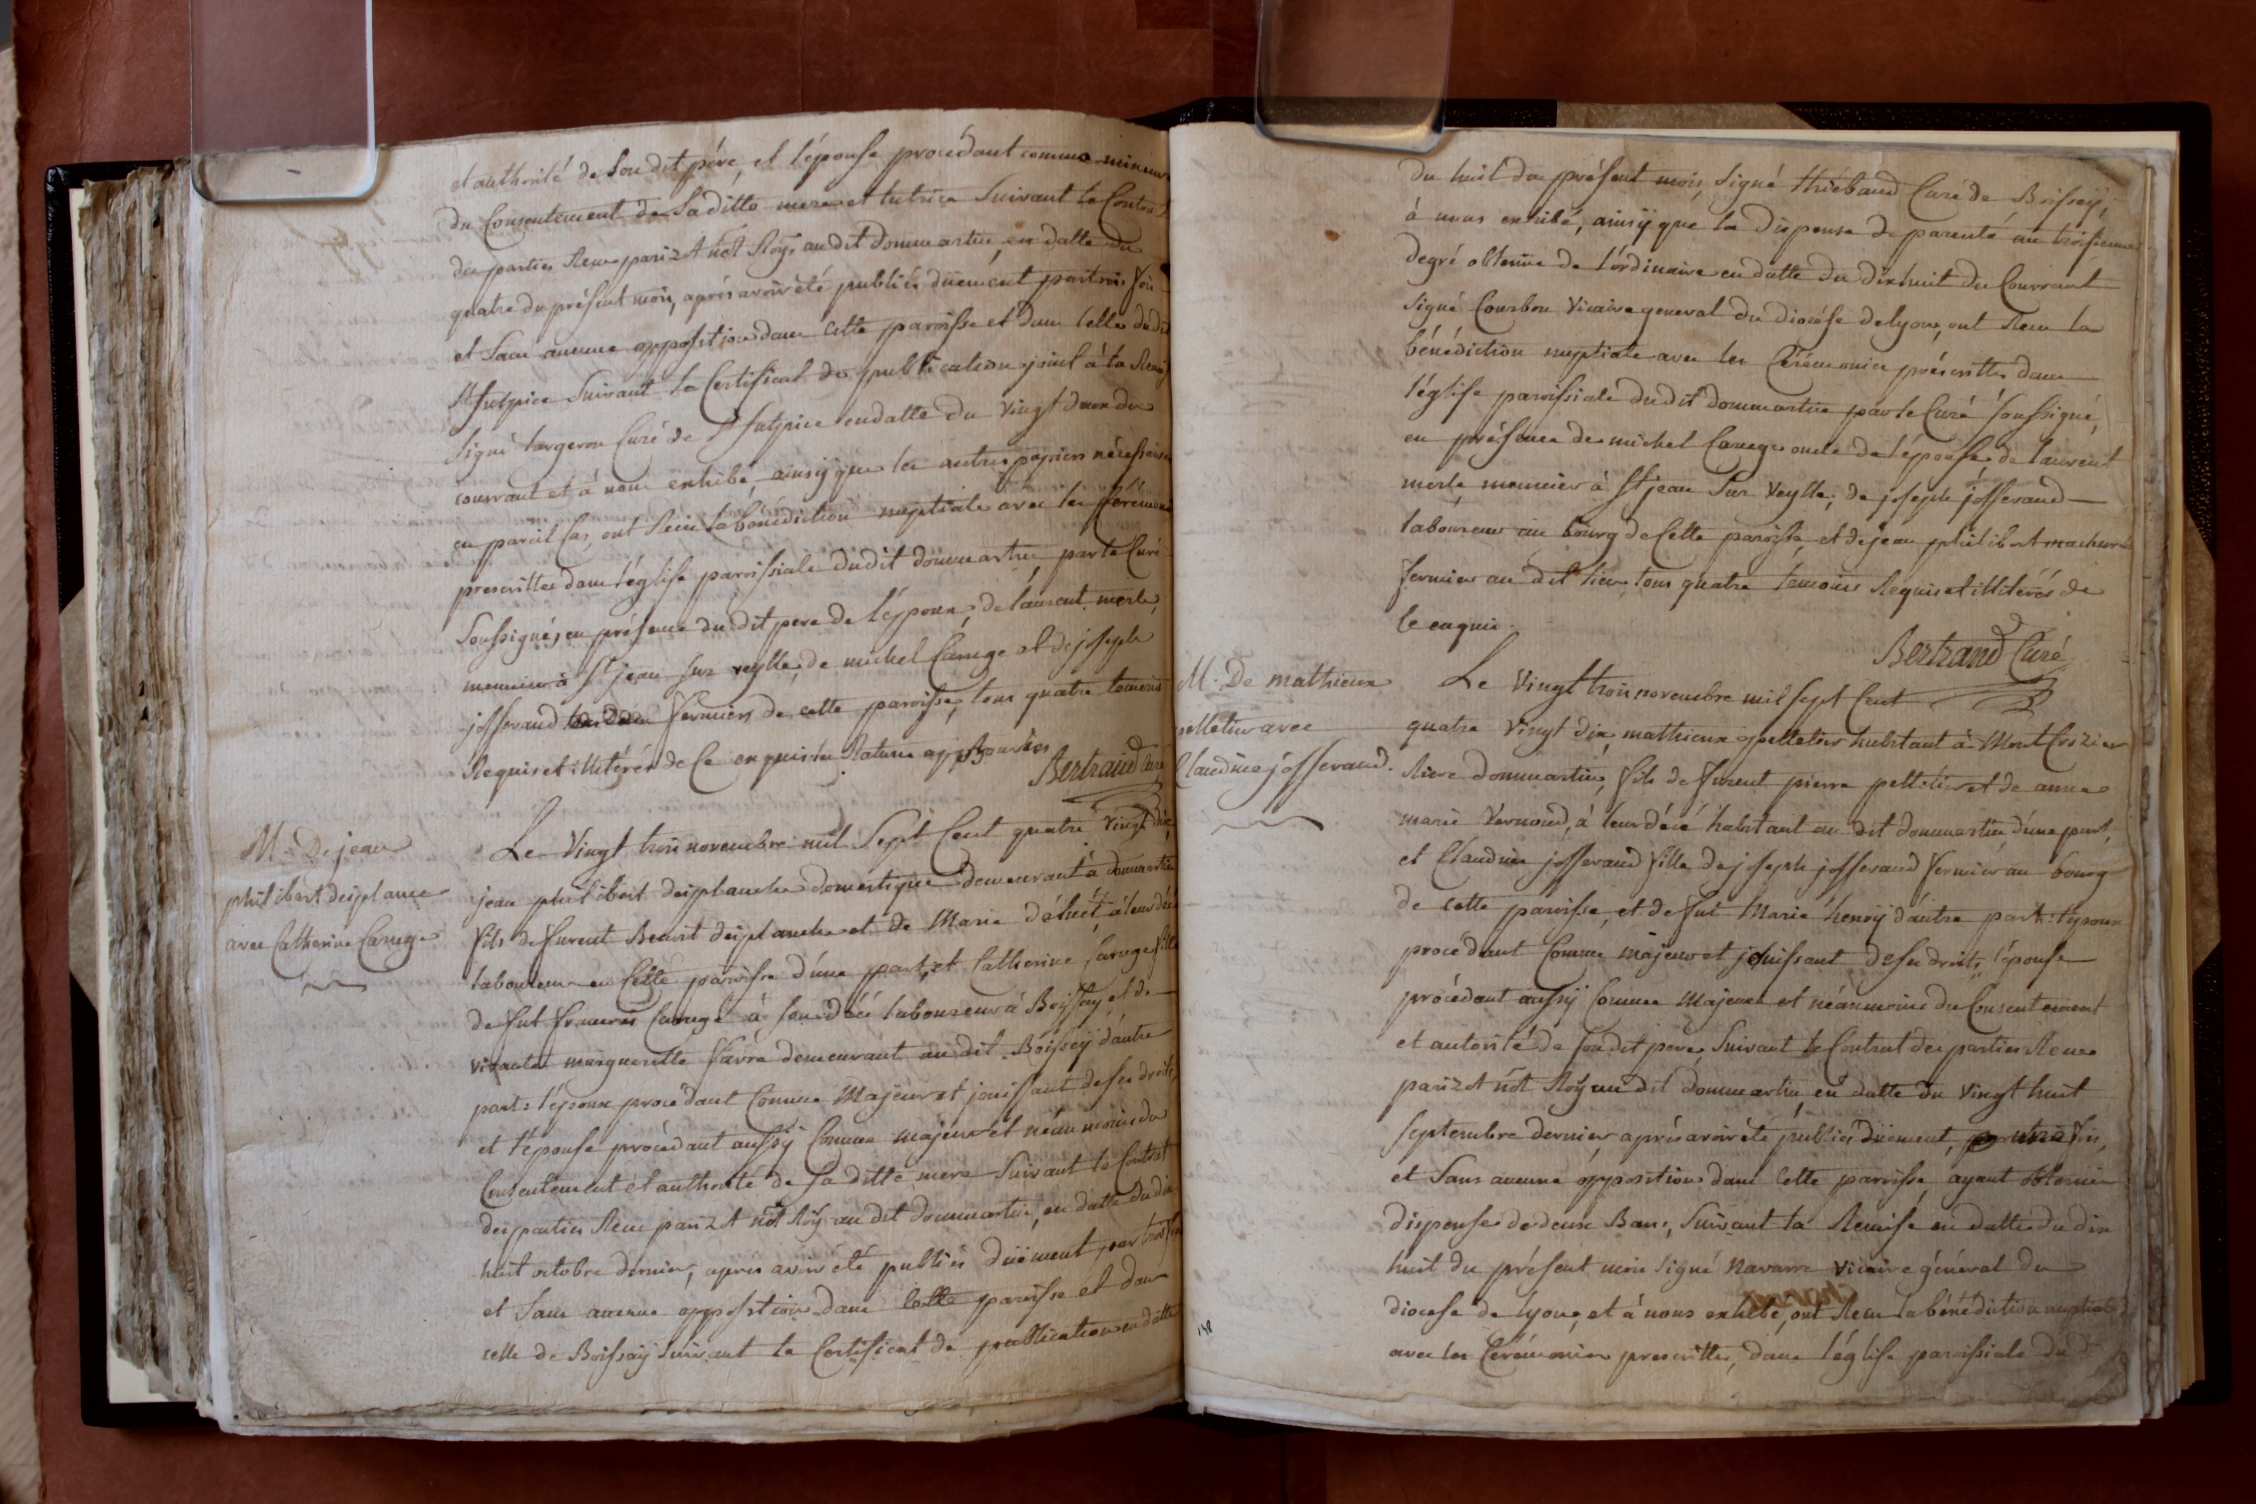 et authorité de Son dit pére, et l'épouse procédant comme mineure
du Consentement de Saditte mere et tutrice Suivant le Contrat
des parties Reçu parizot not Roÿ. audit dommartin, en datte du
quatre du présent mois, après avoir été publiés düement par trois fois
et Sans aucune opposition dans cette paroisse et dans celle dudit
St sulpice Suivant le Certificat de publication joint à la Remise
Signé Curé de St sulpice en datte du vingt deux du
courrant et à nous exhibé, ainsÿ que les autres papiers nécessaires
en pareil Cas, ont Reçu la bénédiction nuptiale avec les Cérémonies
prescrittes dans l'église paroissiale dudit dommartin, par le Curé
Soussigné, en présence du dit pere de l'époux, de laurent merle,
meunier à St jean sur veylle, de michel Carruge et de joseph
josserand fermiers de cette paroisse, tous quatre temoins
Requis et illitérés de Ce enquis
Bertrand Curé
M. De jean
philibert desplance
avec Catherine Caruge
Le Vingt trois novembre mil Sept Cent quatre vingt dix
jean philibert desplanche domestique demeurant à dommartin
fils de furent Benoit desplanche et de Marie à leur décé
laboureur en Cette paroisse d'une part, et Catherine Caruge fille
de fut françois Caruge à son décé laboureur à Boissey, et de
vivante margueritte favre demeurant au dit Boissey d'autre
part: l'époux procédant Comme Majeur et jouissant de ses droits,
et l'épouse procédant aussÿ Comme majeur et néanmoins du
Consentement et authorité de Sa ditte mere Suivant le Contrat
des parties Reçu parizot not Roÿ au dit dommartin, en datte du dix
huit octobre dernier, après avoir été publiés düement par trois fois
et Sans aucune opposition dans Cette paroisse et dans
celle de Boissey suivant le Certificat de publication en datte
du huit du présent mois, signé thiébaud Curé de Boissey,
à nous exhibé, ainsÿ que la dispense de parenté au troisieme
degré obtenüe de l'órdinaire en datte du dixhuit du Courrant
signé Courbon Vicaire general du diocése de lyon, ont Reçu la
bénédiction nuptiale avec les Cérémonies préscrittes dans
l'église paroissiale dudit dommartin par le Curé soussigné,
en présence de michel Caruge oncle de l'épouse, de laurent
merle meunier à St jean Sur Veylle, de joseph josserand
laboureur au bourg de Cette paroisse, et de jean philibert
fermier au dit lieu, tous quatre temoins Requis et illitérés de
Ce enquis.
Bertrand Curé
M. De mathieux
pelletier avec
Claudine josserand.
Le Vingt trois novembre mil sept Cent
quatre Vingt dix mathieux pelletier habitant à Mont Crozier
Riere dommartin, fils de furent pierre pelletier et de anne
marie Vernoud, à leur décé habitant au dit dommartin d'une part,
et Claudine josserand fille de joseph josserand fermier au bourg
de cette paroisse, et de fut Marie henrÿ d'autre part: l'époux
procédant Comme majeur et jouissant de ses droits, l'épouse
procédant aussÿ Comme Majeure et néanmoins du Consentement
et autorité de son dit pere, Suivant le Contrat des parties Reçu
parizot not Roÿ au dit dommartin, en datte du vingt huit
septembre dernier, après avoir été publiés düement, par une fois,
et Sans aucune opposition dans Cette paroisse, ayant obtenüe
dispense de deux Bans, Suivant la Remise en datte du dix
huit du présent mois signé navarre Vicaire général du
diocese de lyon, et à nous exhibé, ont Reçu la bénédiction nuptiale
avec les Cérémonies prescrittes, dans l'église paroissiale du d